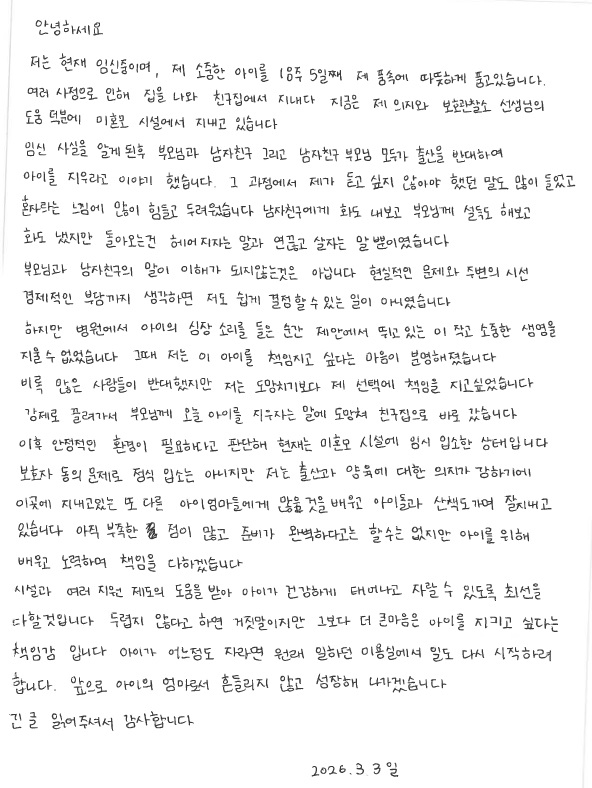 안녕하세요
저는 현재 임신중이며, 제 소중한 아이를 18주 5일째 제 품속에 따뜻하게 품고있습니다.
여러 사정으로 인해 집을 나와 친구집에서 지내다 지금은 제 의지와 보호관찰소 선생님의
도움 덕분에 미혼모 시설에서 지내고 있습니다
임신 사실을 알게 된후 부모님과 남자친구 그리고 남자친구 부모님 모두가 출산을 반대하여
아이를 지우라고 이야기 했습니다. 그 과정에서 제가 듣고 싶지 않아야 했던 말도 많이 들었고
혼자라는 느낌에 많이 힘들고 두려웠습니다 남자친구에게 화도 내보고 부모님께 설득도 해보고
화도 냈지만 돌아오는건 헤어지자는 말과 연끊고 살자는 말 뿐이였습니다
부모님과 남자친구의 말이 이해가 되지않는것은 아닙니다 현실적인 문제와 주변의 시선
경제적인 부담까지 생각하면 저도 쉽게 결정할수 있는 일이 아니였습니다
하지만 병원에서 아이의 심장 소리를 들은 순간 제안에서 뛰고 있는 이 작고 소중한 생명을
지울수 없었습니다 그때 저는 이 아이를 책임지고 싶다는 마음이 분명해졌습니다
비록 많은 사람들이 반대했지만 저는 도망치기보다 제 선택에 책임을 지고싶었습니다
강제로 끌려가서 부모님께 오늘 아이를 지우자는 말에 도망쳐 친구집으로 바로 갔습니다
이후 안정적인 환경이 필요하다고 판단해 현재는 미혼모 시설에 임시 입소한 상태입니다
보호자 동의 문제로 정식 입소는 아니지만 저는 출산과 양육에 대한 의지가 강하기에
이곳에 지내고있는 또 다른 아이엄마들에게 많을 것을 배우고 아이들과 산책도가며 잘지내고
있습니다 아직 부족한 점이 많고 준비가 완벽하다고는 할수는 없지만 아이를 위해
배우고 노력하며 책임을 다하겠습니다
시설과 여러 지원 제도의 도움을 받아 아이가 건강하게 태어나고 자랄 수 있도록 최선을
다할것입니다 두렵지 않다고 하면 거짓말이지만 그보다 더 큰마음은 아이를 지키고 싶다는
책임감 입니다 아이가 어느정도 자라면 원래 일하던 미용실에서 일도 다시 시작하려
합니다. 앞으로 아이의 엄마로서 흔들리지 않고 성장해 나가겠습니다
긴 글 읽어주셔서 감사합니다.
2026.3.3일